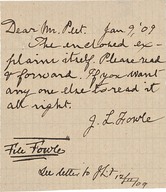 Dear Mr. Peet. Jan 9, '09
The enclosed ex-
plains itself. Please read
& forward. If you want
any one else to read it
all right.
J. L. Fowle
File Fowle
See letter to 12/12/09